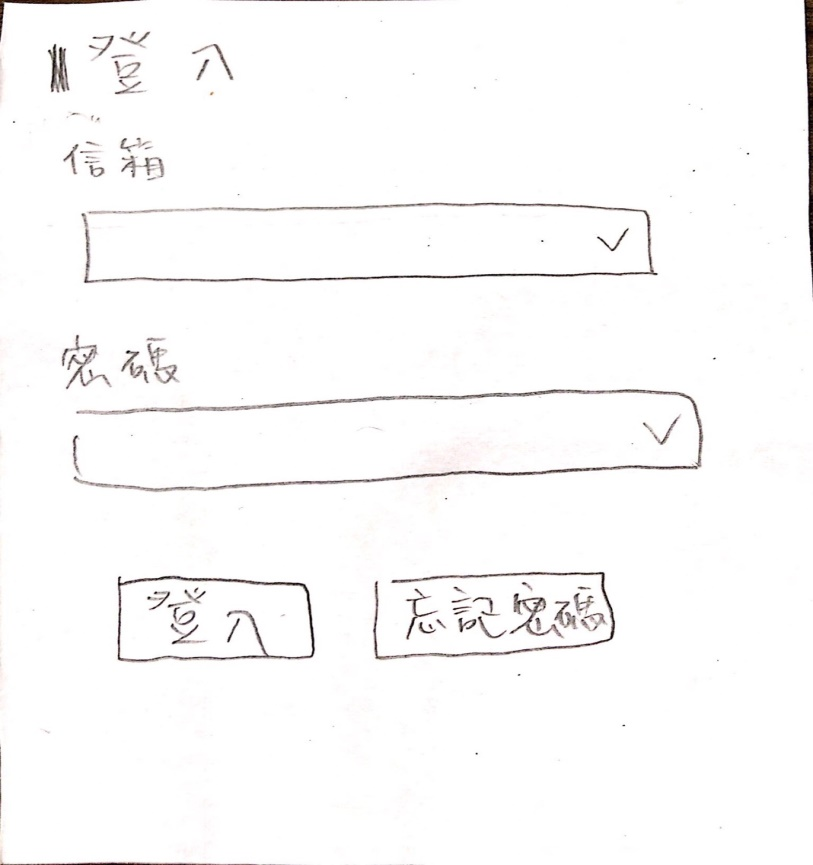 登入
信箱
密碼
登入 忘記密碼